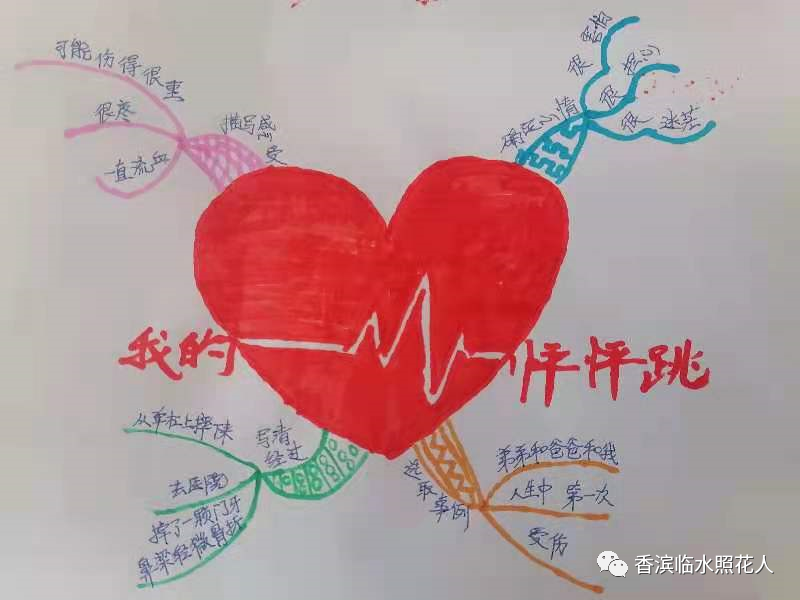 可能伤得很重
很疼
一直流血
描写感受
确定心情
很害怕
很担心
很迷茫
我的 怦怦跳
从单杠上摔下来
去医院
摔了一颗门牙
鼻梁轻微骨折
写清
经过
选取事例
弟弟和爸爸和我
人生中 第一次
受伤
香滨临水照花人